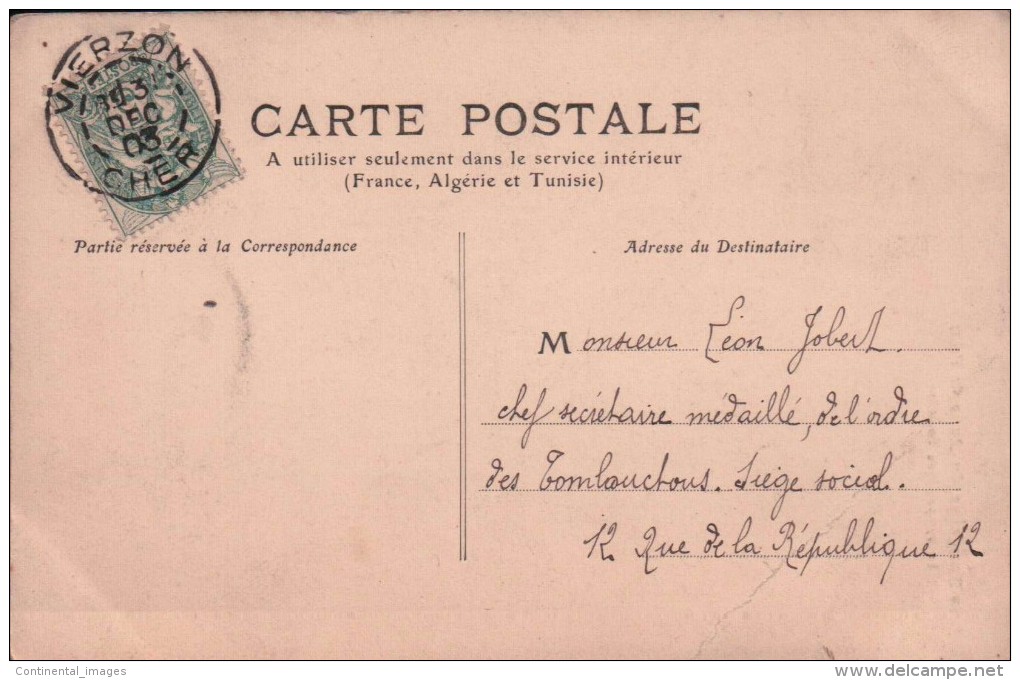 VIERZON
13
DEC
03
CHER
CARTE POSTALE
A utiliser seulement dans le service intérieur
(France, Algérie et Tunisie)
Partie réservée à la Correspondance
Adresse du Destinataire
Monsieur Léon Jobert.
chef secrétaire médaillé, de l'ordre
des Tomlouchous. Siège social.
12 Rue de la République 12
Continental_images
www.delcampe.net